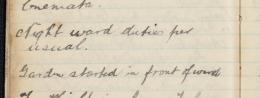 Cinemats.
Night ward duties per
usual.
Garden started in front of ward